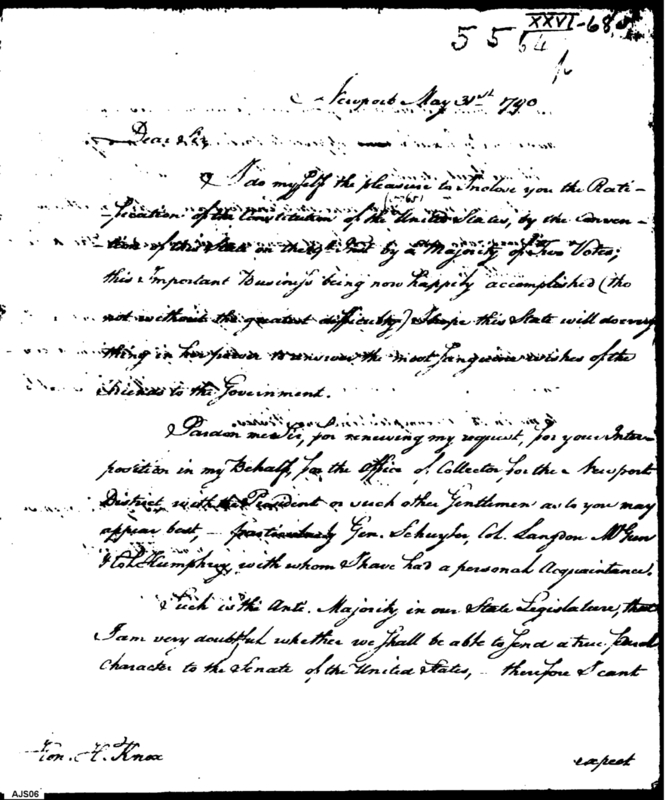 XXVI-68
5564
Newport May 31st 1790
Dear Sir
I do myself the pleasure to Inclose you the Rati-
-fication of the Constitution of the United States, by the Conven-
-tion of this State on the Inst. by a Majority of Two Votes;
this Important Business being now happily accomplished (tho
not without the greatest difficulty) I hope this State will do every
thing in her power to answer the most sanguine wishes of the
Friends to the Government.
Pardon me Sir, for renewing my request, for your Inter-
position in my Behalf, for the Office of Collector, for the Newport
District, with the President or such other Gentlemen as to you may
appear best, - particularly Gen. Schuyler, Col. Langdon
& Col. Humphrys, with whom I have had a personal Acquaintance.
Such is the Anti. Majority, in our State Legislature, that
I am very doubtful whether we shall be able to send a true fœderal
Character to the Senate of the United States, - therefore I cant
Hon. H. Knox
expect
AJS06